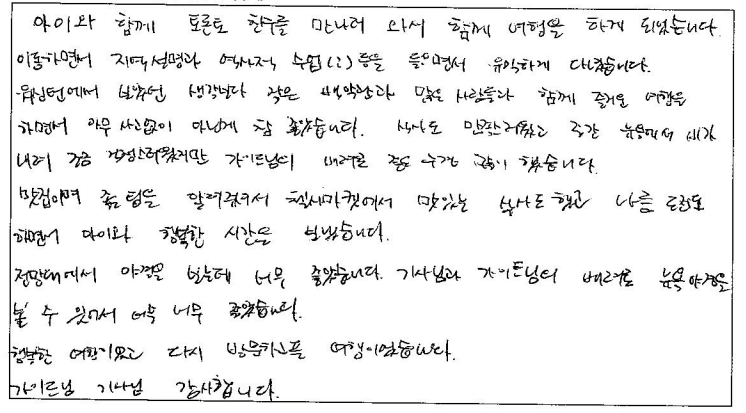 아이와 함께 토론토 친구를 만나러 와서 함께 여행을 하게 되었습니다.
이동하면서 지역설명과 역사적 수업(?) 등을 들으면서 유익하게 다녔습니다.
워싱턴에서 보았던 생각보다 작은 백악관과 많은 사람들과 함께 즐거운 여행을
하면서 아무 사고없이 다닌게 참 좋았습니다. 식사도 만족스러웠고 중간 뉴욕에서 비가
내려 조금 걱정스러웠지만 가이드님의 배려로 좋은 구경 많이 했습니다.
맛집이며 좋은 팁을 알려주셔서 첼시마켓에서 맛있는 식사도 했고 나름 도전도
하면서 아이와 행복한 시간을 보냈습니다.
전망대에서 야경을 보는데 너무 좋았습니다. 기사님과 가이드님의 배려로 뉴욕야경을
볼 수 있어서 더욱 너무 좋았습니다.
행복한 여행이었고 다시 방문하고픈 여행이었습니다.
가이드님 기사님 감사합니다.